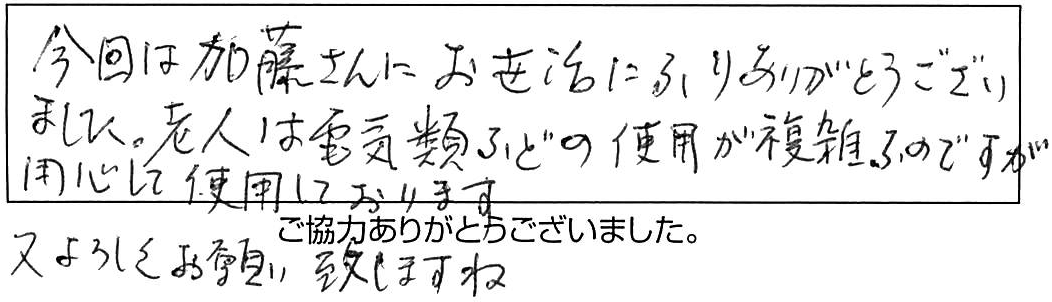 今回は加藤さんにお世話になりありがとうござい
ました。老人は電気類などの使用が複雑なのですが
用心して使用しております
ご協力ありがとうございました。
又よろしくお願い致しますね